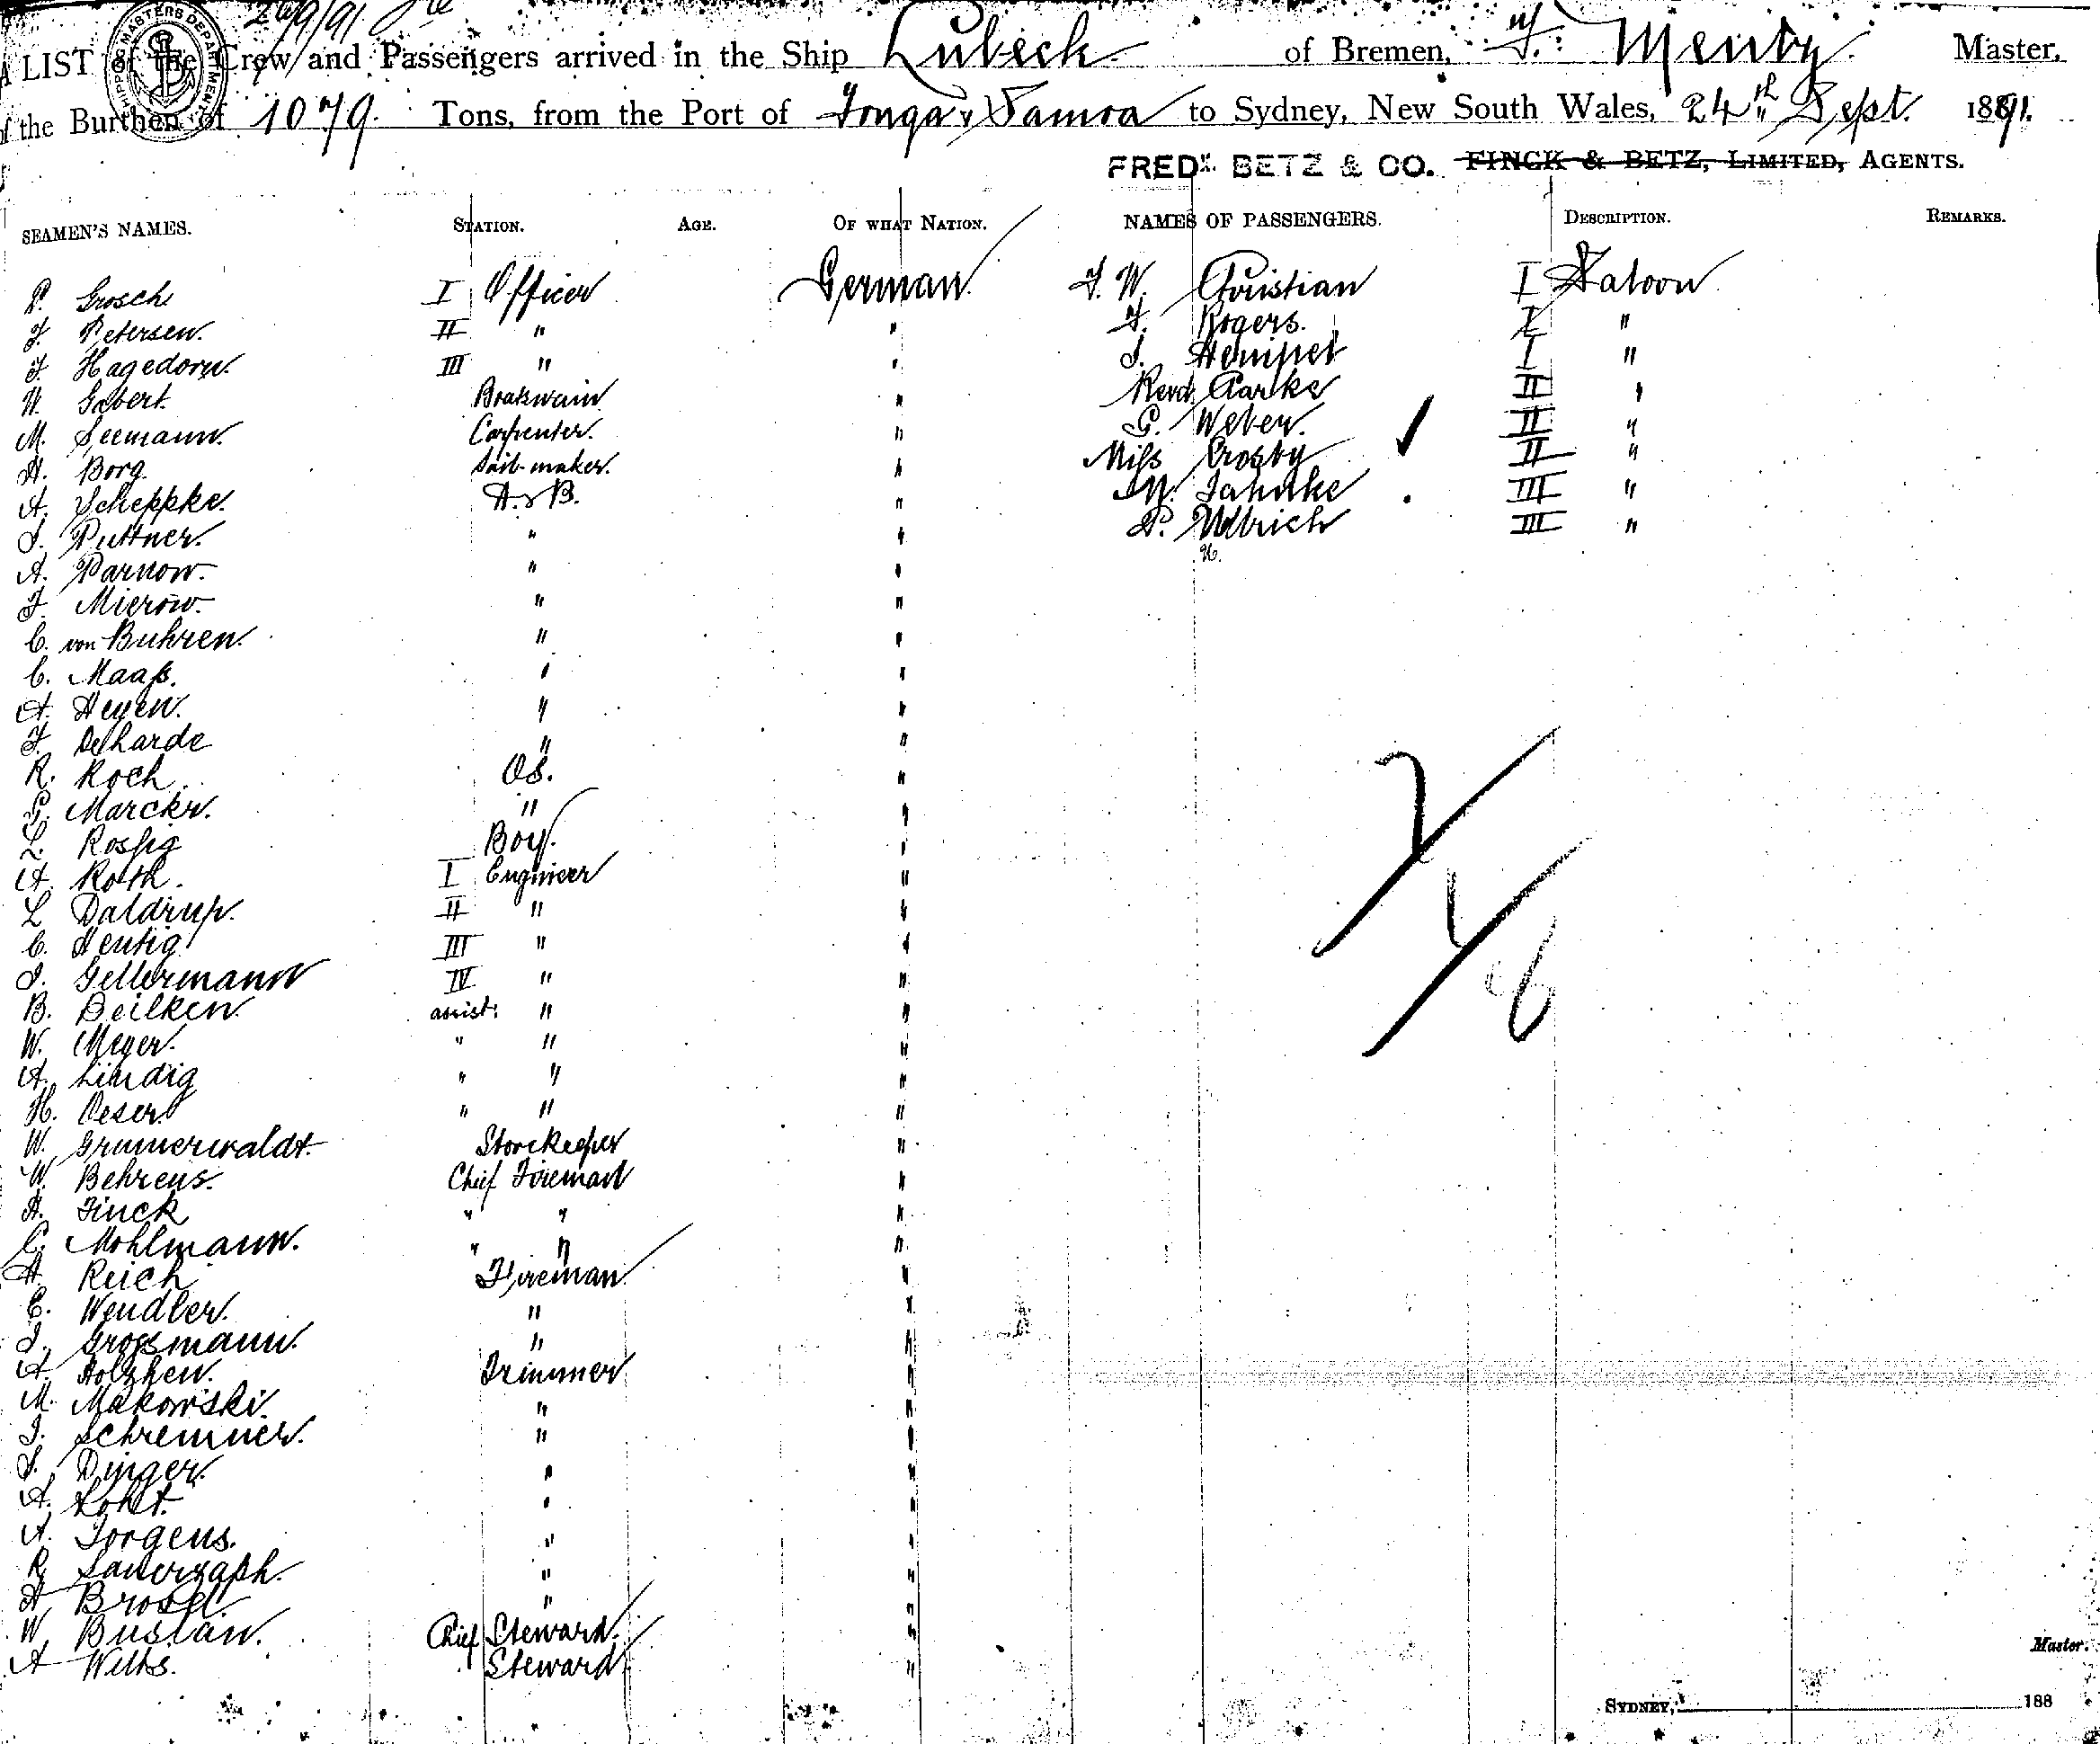 26/9/91
A LIST of the Crew and Passengers arrived in the Ship Lübeck of Bremen, Master,
of the Burthen of 1079. Tons, from the Port of Tonga & Samoa to Sydney, New South Wales, 24th Sept. 1891.
SHIPPING MASTERS DEPARTMENT
FREDK. BETZ & CO. FINCK & BETZ, LIMITED, AGENTS.
SEAMEN'S NAMES. STATION. AGE. OF WHAT NATION. NAMES OF PASSENGERS. DESCRIPTION. REMARKS.
P. Grosch I Officer German F. W. Christian I Saloon
J. Petersen. II " " F. Rogers. I "
J. Hagedorn. III " " I "
W. Boatswain " Revd. II "
M. Seemann. Carpenter. " G. Weber. II "
H. Borg. Sail-maker. " Miss Crosby II "
A. Scheppke. A. & B. " Jahnke III "
J. Puttner. " " P. Ullrich III "
A. Parnow. " "
J. Mierow. " "
C. von Buhren. " "
C. Maaß. " "
A. Heyen. " "
F. Deharde " "
R. Koch. OS. "
G. Marckr. " "
L. Rossig Boy. "
A. Roth. I Engineer "
L Daldrup. II " "
C. Hentig III " "
J. Gellermann IV " "
B. Beilken assist: " "
W. Meyer. " " "
A. Lindig " " "
H. Oeser " " "
W. Grunerwaldt. Storekeeper "
W. Behrens. Chief Fireman "
H. Finck " " "
C. Mohlmann. " " "
H. Reich Fireman "
E. Wendler. " "
J. Grossmann. " "
A. Holzhen. Trimmer "
M. Makowski. " "
J. Schremmer. " "
J. Dinger. " "
A. " "
A. Jorgens. " "
R. " "
H " "
W. Buslaw. Chief Steward. "
A Wilks. Steward "
2/
1/6
Master.
SYDNEY, 188